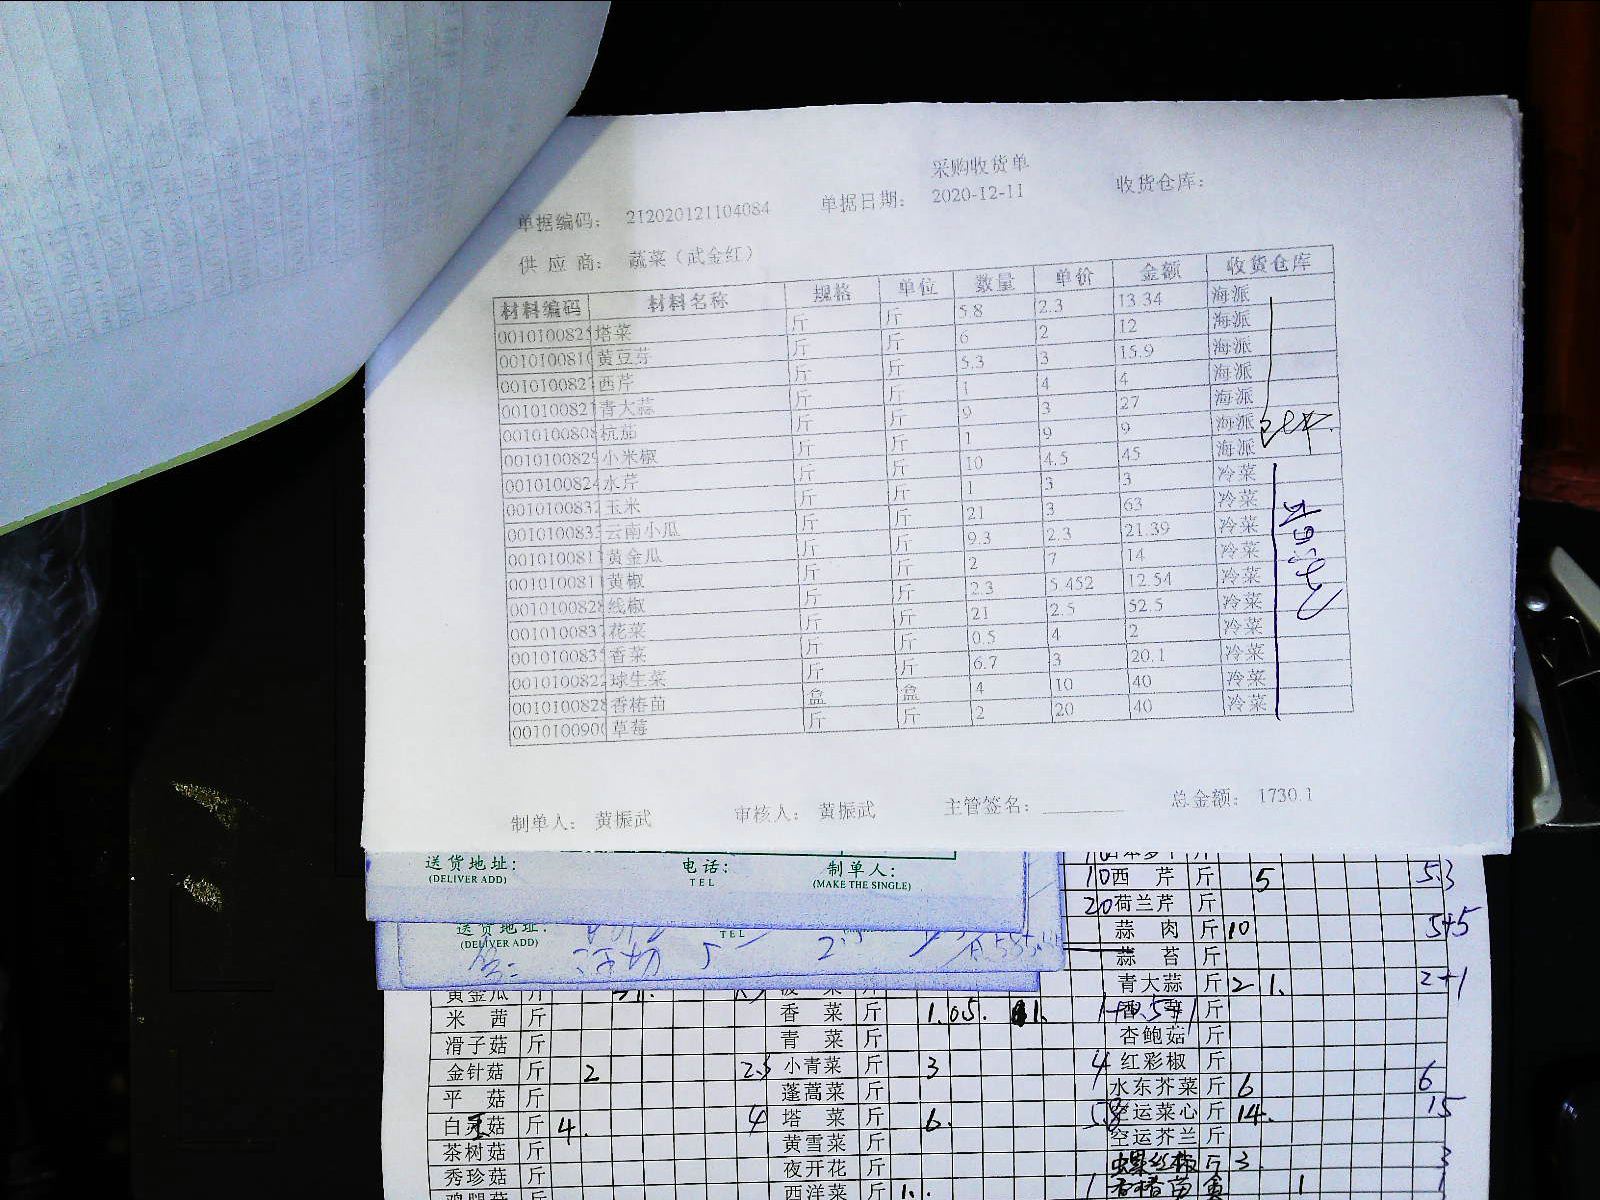 采购收货单
单据编码： 212020121104084 单据日期： 2020-12-11 收货仓库：
供 应 商： 蔬菜（武金红）
材料编码 材料名称 规格 单位 数量 单价 金额 收货仓库
001010082 塔菜 斤 斤 5.8 2.3 13.34 海派
001010081 黄豆芽 斤 斤 6 2 12 海派
001010082 西芹 斤 斤 5.3 3 15.9 海派
001010082 青大蒜 斤 斤 1 4 4 海派
001010080 杭茄 斤 斤 9 3 27 海派
001010082 小米椒 斤 斤 1 9 9 海派
001010082 水芹 斤 斤 10 4.5 45 海派
001010083 玉米 斤 斤 1 3 3 冷菜
001010083 云南小瓜 斤 斤 21 3 63 冷菜
001010081 黄金瓜 斤 斤 9.3 2.3 21.39 冷菜
001010081 黄椒 斤 斤 2 7 14 冷菜
001010082 线椒 斤 斤 2.3 5.452 12.54 冷菜
001010083 花菜 斤 斤 21 2.5 52.5 冷菜
001010083 香菜 斤 斤 0.5 4 2 冷菜
001010082 球生菜 斤 斤 6.7 3 20.1 冷菜
001010082 香椿苗 盒 盒 4 10 40 冷菜
001010090 草莓 斤 斤 2 20 40 冷菜
制单人： 黄振武 审核人： 黄振武 主管签名： 总金额： 1730.1
送货地址： 电话： 制单人：
(DELIVER ADD) TEL (MAKE THE SINGLE)
10 西 芹 斤 5 5.3
20 荷兰芹 斤
送货地址：
(DELIVER ADD) TEL
蒜 肉 斤 10 5+5
蒜 苔 斤
青大蒜 斤 2 1. 2+1
黄金瓜 斤
米 茜 斤 香 菜 斤 1.05. 1. 斤
滑子菇 斤 青 菜 斤 杏鲍菇 斤
金针菇 斤 2 2.3 小青菜 斤 3 4 红彩椒 斤
平 菇 斤 蓬蒿菜 斤 水东芥菜 斤 6 6
白灵菇 斤 4. 4 塔 菜 斤 6. 5.8 空运菜心 斤 14. 15
茶树菇 斤 黄雪菜 斤 空运芥兰 斤
秀珍菇 斤 夜开花 斤 螺丝椒 斤 3. 3
鸡腿菇 斤 西洋菜 斤 1. 1 香椿苗 盒 1 1